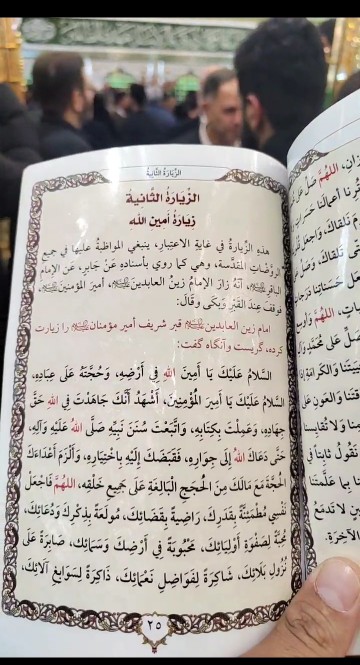 الزِّيَارَةُ الثَّانِيَةُ
الزِّيَارَةُ الثَّانِيَةُ
زِيَارَةُ أَمِينِ اللهِ
هذِهِ الزِّيارةُ في غايَةِ الاعتِبارِ، يَنبَغي المواظَبةُ عليها في جميعِ
الرَّوضَاتِ المُقدَّسة، وهي كما روي بأسنادِهِ عَنْ جَابِرٍ، عَن الإمام
الباقِرِ، أنّهُ زارَ الإمامُ زينُ العابدين، أميرَ المؤمنين
فوقفَ عِندَ القَبْرِ وَبَكى وقَالَ:
امام زين العابدين قبر شريف أمير مؤمنان را زیارت
کرده، گریست وآنگاه گفت:
السَّلامُ عَلَيْكَ يَا أَمِينَ اللهِ فِي أَرْضِهِ، وَحُجَّتَهُ عَلَى عِبادِهِ،
السَّلَامُ عَلَيْكَ يَا أَمِيرَ الْمُؤْمِنِينَ، أَشْهَدُ أَنَّكَ جَاهَدْتَ فِي اللهِ حَقَّ
جِهَادِهِ، وَعَمِلْتَ بِكِتَابِهِ، وَاتَّبَعْتَ سُنَنَ نَبِيِّهِ صَلَّى اللهُ عَلَيْهِ وَآلِهِ،
حَتَّى دَعَاكَ اللهُ إِلَى جِوَارِهِ، فَقَبَضَكَ إِلَيْهِ بِاخْتِيَارِهِ، وَأَلْزَمَ أَعْدَاءَكَ
الْحُجَّةَ مَعَ مَالَكَ مِنَ الْحُجَجِ الْبَالِغَةِ عَلَى جَمِيعِ خَلْقِهِ، اَللّهُمَّ فَاجْعَلْ
نَفْسِي مُطْمَئِنَّةً بِقَدَرِكَ، رَاضِيَةً بِقَضَائِكَ، مُولَعَةً بِذِكْرِكَ وَدُعَائِكَ،
مُحِبَّةً لِصَفْوَةِ أَوْلِيَائِكَ، مَحْبُوبَةً فِي أَرْضِكَ وَسَمَائِكَ، صَابِرَةً عَلَى
نُزُولِ بَلَائِكَ، شَاكِرَةً لِفَوَاضِلِ نَعْمَائِكَ، ذَاكِرَةً لِسَوَابِغِ آلَائِكَ،
٢٥
اللهُمَّ صَلِّ عَلَى
أَعْمَالَنَا حَسَرَاتٍ
تَلْقَاكَ، وَاجْعَلْ
حَسَنَاتِنَا دَرَجَاتٍ
اللهُمَّ
عَلَى مُحَمَّدٍ
وَالْكَرَامَةَ
وَالْعَوْنَ عَلَى
ثَابِتاً فِي
بِمَا عَلَّمْتَنَا
لَا تَدْمَعُ
الْآخِرَةِ.